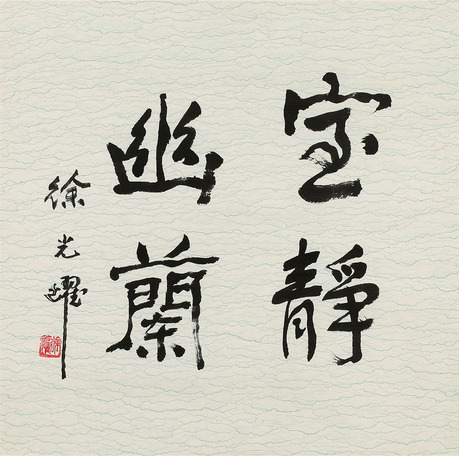 室靜
幽蘭
徐光耀